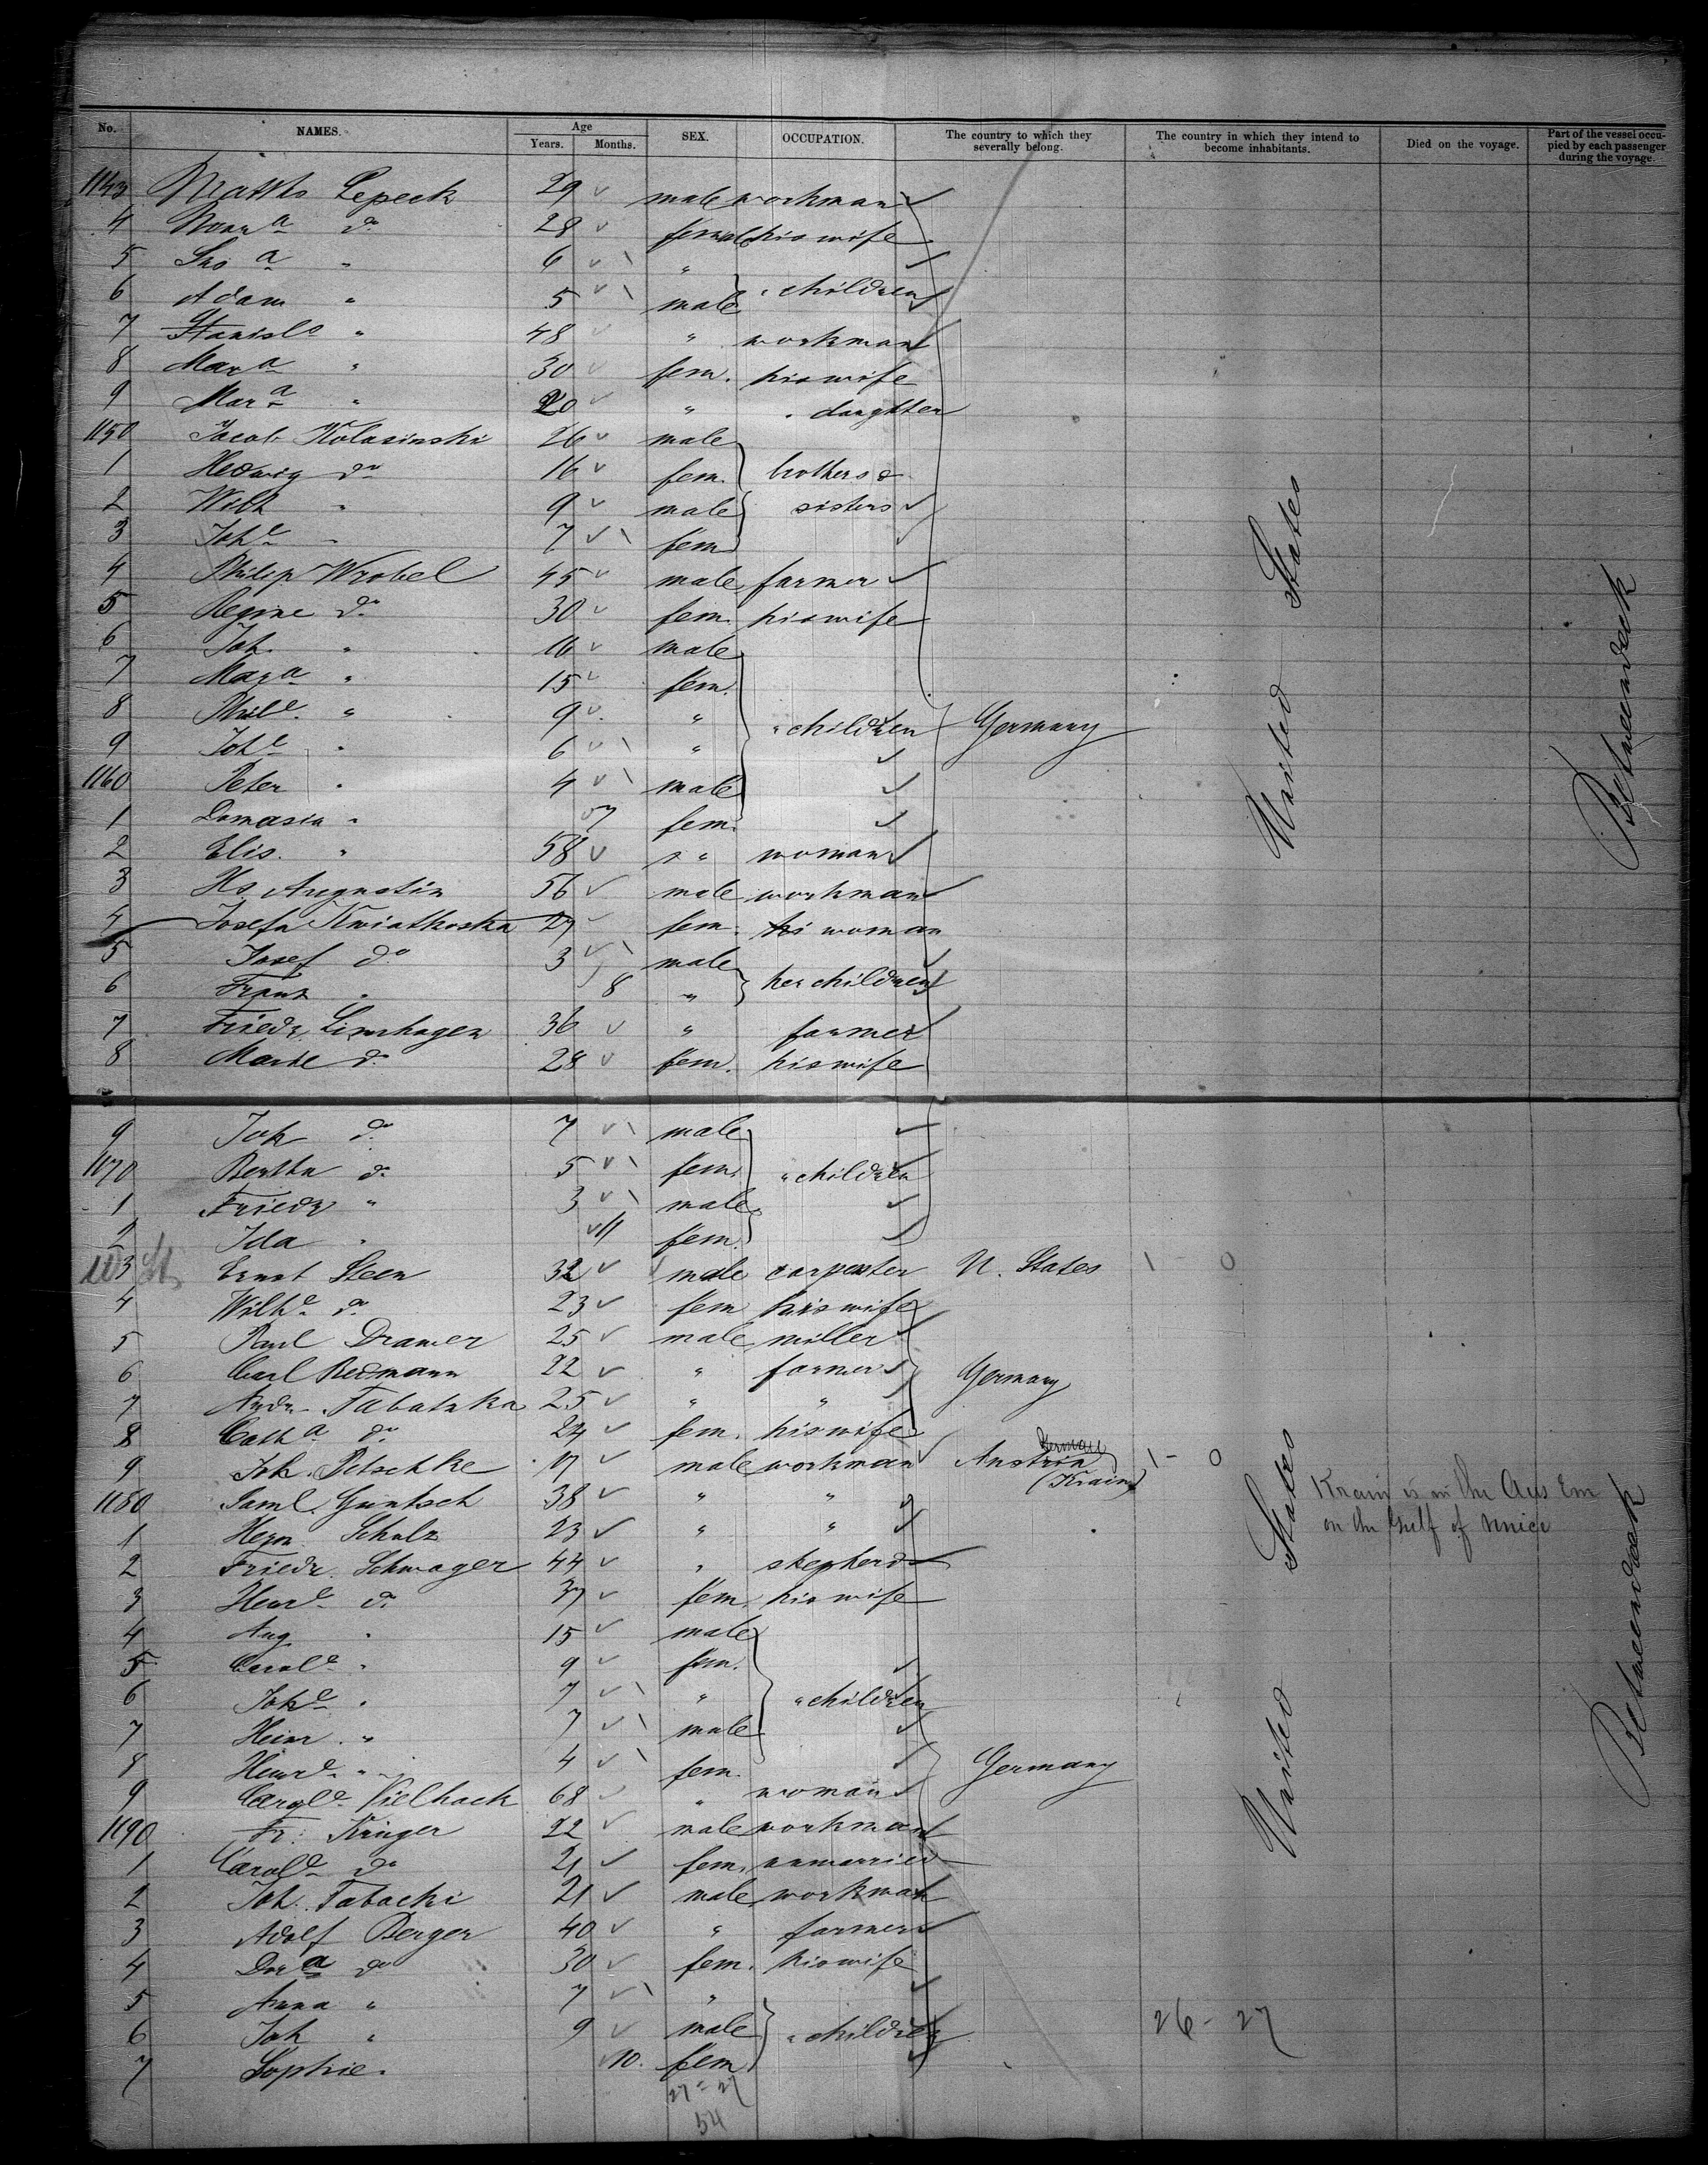 No. NAMES. Age Years. Months. SEX. OCCUPATION. The country to which they severally belong. The country in which they intend to become inhabitants. Died on the voyage. Part of the vessel occupied by each passenger during the voyage.
1143 Matths Lepeck 29 male workman
4 Nonna do 28 female his wife
5 " 6 "
6 Adam " 5 male " children
7 Stanisl° " 48 " workman
8 Mara " 30 fem. his wife
9 Mara " 20 " " daughter
1150 Jacob Kolasinski 26 male
1 Hedwig do 16 fem. brothers &
2 Wilh " 9 male sisters
3 Johe " 7 fem
4 Philip Wrobel 45 male farmer
5 Regine do 30 fem. his wife
6 Joh. " 16 male
7 Mara " 15 fem.
8 Phile. " 9 " " children Germany
9 Johe " 6 "
1160 Peter " 4 male
1 Domasia " 7 fem.
2 Elis. " 58 " woman
3 Hs. Augustin 56 male workman
4 Josefa Kwiatkoska 27 fem. woman
5 Josef do 3 male
6 Franz " 8 " her children
7 Friedr. Limhagen 36 " farmer
8 Marie do 28 fem. his wife
9 Joh do 7 male
1170 Bertha do 5 fem. " children
1 Friedr " 3 male
2 Ida " 11 fem.
3 Ernst Steen 32 male carpenter U. States 1 - 0
4 Wilhe do 23 fem his wife
5 Paul Dramer 25 male miller
6 Carl Redmann 22 " farmer Germany
7 Andr. Tabatzka 25 " "
8 Catha do 24 fem. his wife
9 Joh. Pitschke 17 male workman Austria German (Krain) 1 - 0
1180 Saml. Guntsch 38 " " Krain is in the Aus Em
1 Herm. Schulz 23 " " on the Gulf of Venice
2 Friedr. Schwager 44 " shepherd
3 Henre do 37 fem. his wife
4 Aug " 15 male
5 Carole " 9 fem.
6 Johe " 7 " " children
7 Heinr. " 7 male
8 Henre " 4 fem. Germany
9 Carole Vielhack 68 " woman
1190 Fr. Krüger 22 male workman
1 Carole do 21 fem. unmarried
2 Joh. Tabacki 21 male workman
3 Adolf Berger 40 " farmer
4 Dora do 30 fem. his wife
5 Anna " 7 "
6 Joh " 9 male " children 26 - 27
7 Sophie " 10. fem
27 = 27
54
United States
Betweendeck
United States
Betweendeck